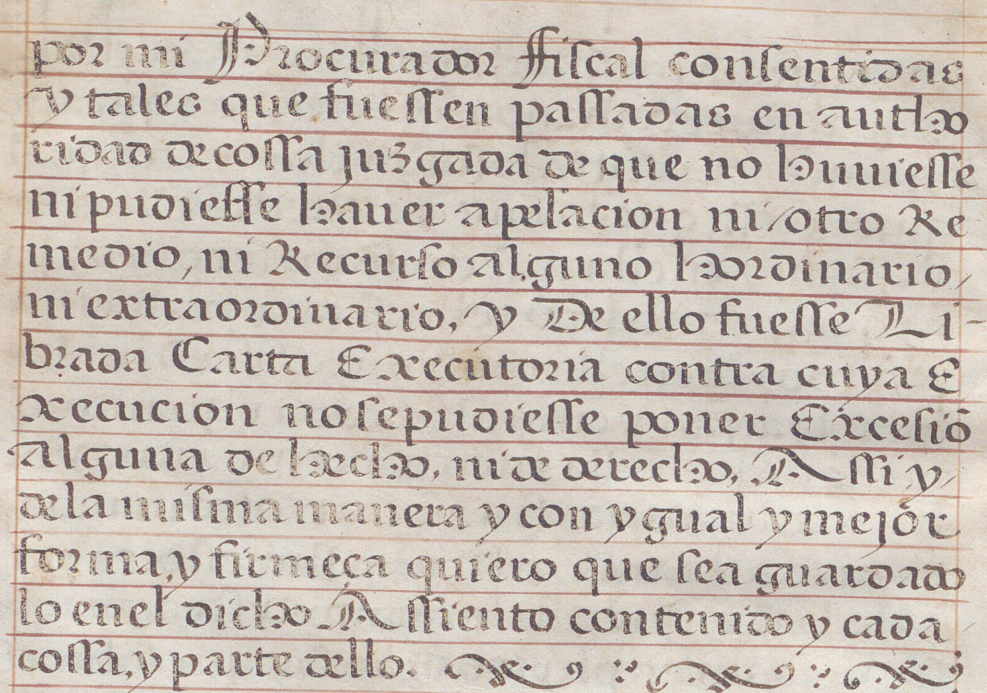 por mi Procurador fiscal consentidas
y tales que fuessen passadas en autho
ridad de cossa juzgada de que no huuiesse
ni pudiesse hauer apelacion ni otro Re
medio, ni Recurso alguno hordinario,
ni extraordinario, y De ello fuesse Li-
brada Carta Executoria contra cuya E
xecucion no se pudiesse poner Excesiō
Alguna de hecho, ni de derecho, Assi y
de la misma manera y con ygual y mejor
forma, y firmeça quiero que sea guardado
lo en el dicho Assiento contenido y cada
cossa, y parte dello.